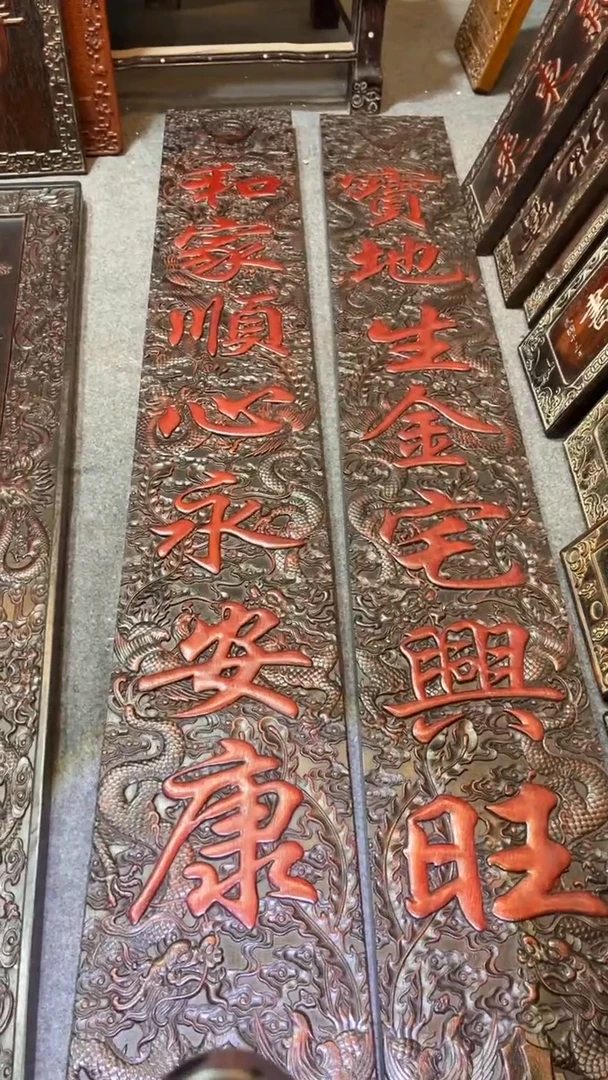 寶地生金宅興旺
和家順心永安康